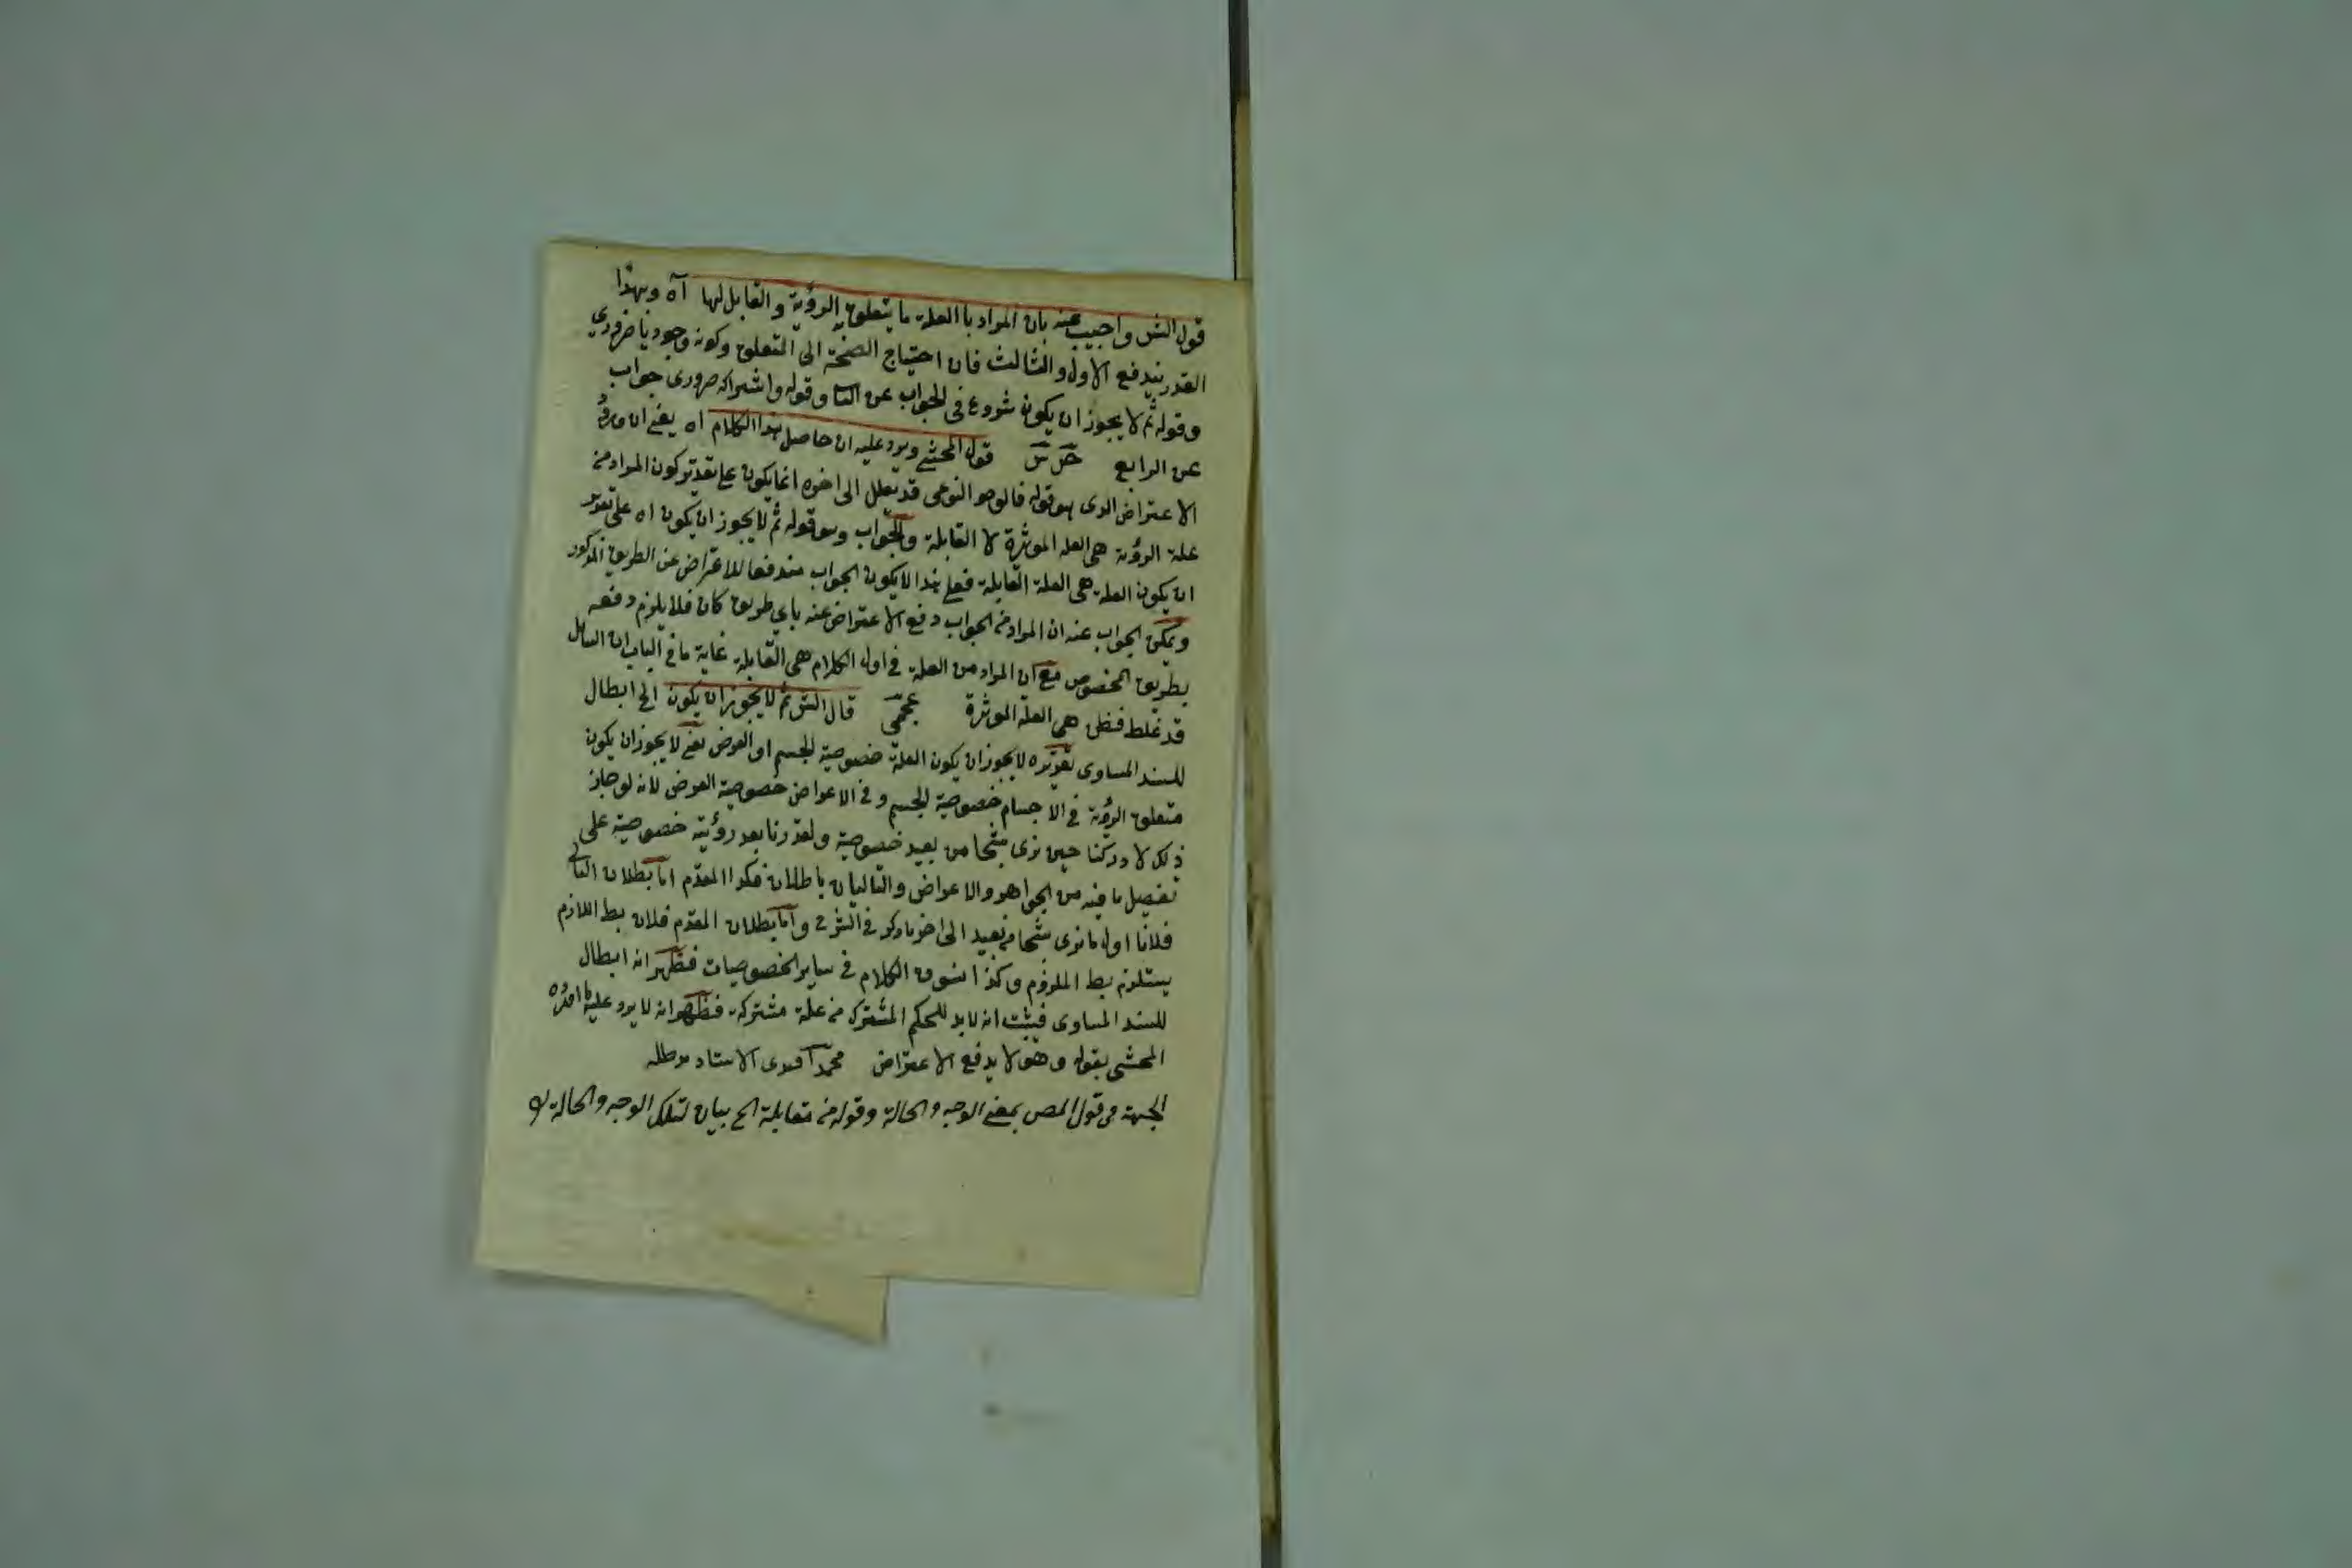 قول الش واجيب عنه بان المراد بالعلة ما يتعلق الرؤية والقابل لها آه وبهذا
القدر يندفع الاول والثالث فان احتياج الصحة الى المتعلق وكونه وجوديا ضروري
وقوله ثم لا يجوز ان يكون شروع في الجواب عن الثا وقوله واشتراكه ضروري جواب
عن الرابع قول المحشي ويرد عليه ان حاصل هذا الكلام اه يعني ان ورود
الاعتراض الذي هو قوله فالوحد النوعى قد يعلل الى اخره انما يكون على تقدير كون المراد من
علة الرؤية هى العلة الموثرة لا القابلة والجواب وهو قوله ثم لا يجوز ان يكون اه على تقدير
ان يكون العلة هى العلة القابلة فعلى هذا لا يكون الجواب مندفعا للاعتراض عن الطريق المذكور
ويمكن الجواب عنه ان المراد من الجواب دفع الاعتراض عنه باي طريق كان فلا يلزم دفعه
بطريق المخصوص مع ان المراد من العلة في اول الكلام هى القابلة غاية ما في الباب ان السائل
قد غلط فظن هى العلة الموثرة عجمي قال الش ثم لا يجوز ان يكون الخ ابطال
للسند المساوى تقريره لا يجوز ان يكون العلة خصوصية الجسم او العرض يعني لا يجوز ان يكون
متعلق الرؤية في الاجسام خصوصية الجسم وفي الاعراض خصوصية العرض لانه لو جاز
ذلك لادركنا حين نرى شبحا من بعيد خصوصية ولقدرنا بعد رؤيته خصوصية على
تفصيل ما فيه من الجواهر والاعراض والتاليان باطلان فكذا المقدم اما بطلان التالى
فلانا اول ما نرى شبحا من بعيد الى اخر ما ذكر في الشرح واما بطلان المقدم فلان بط اللازم
يستلزم بط الملزوم وكذا نسوق الكلام في ساير الخصوصيات فظهر انه ابطال
للسند المساوى فيثبت انه لابد للحكم المشترك من علة مشتركة فظهر انه لا يرد عليه ما اورده
المحشى بقوله وهو لا يدفع الاعتراض محمد افندى الاستاد مد ظله
الجهة في قول المص بمعنى الوجه والحالة وقوله من مقابلة الخ بيان لتلك الوجه والحالة